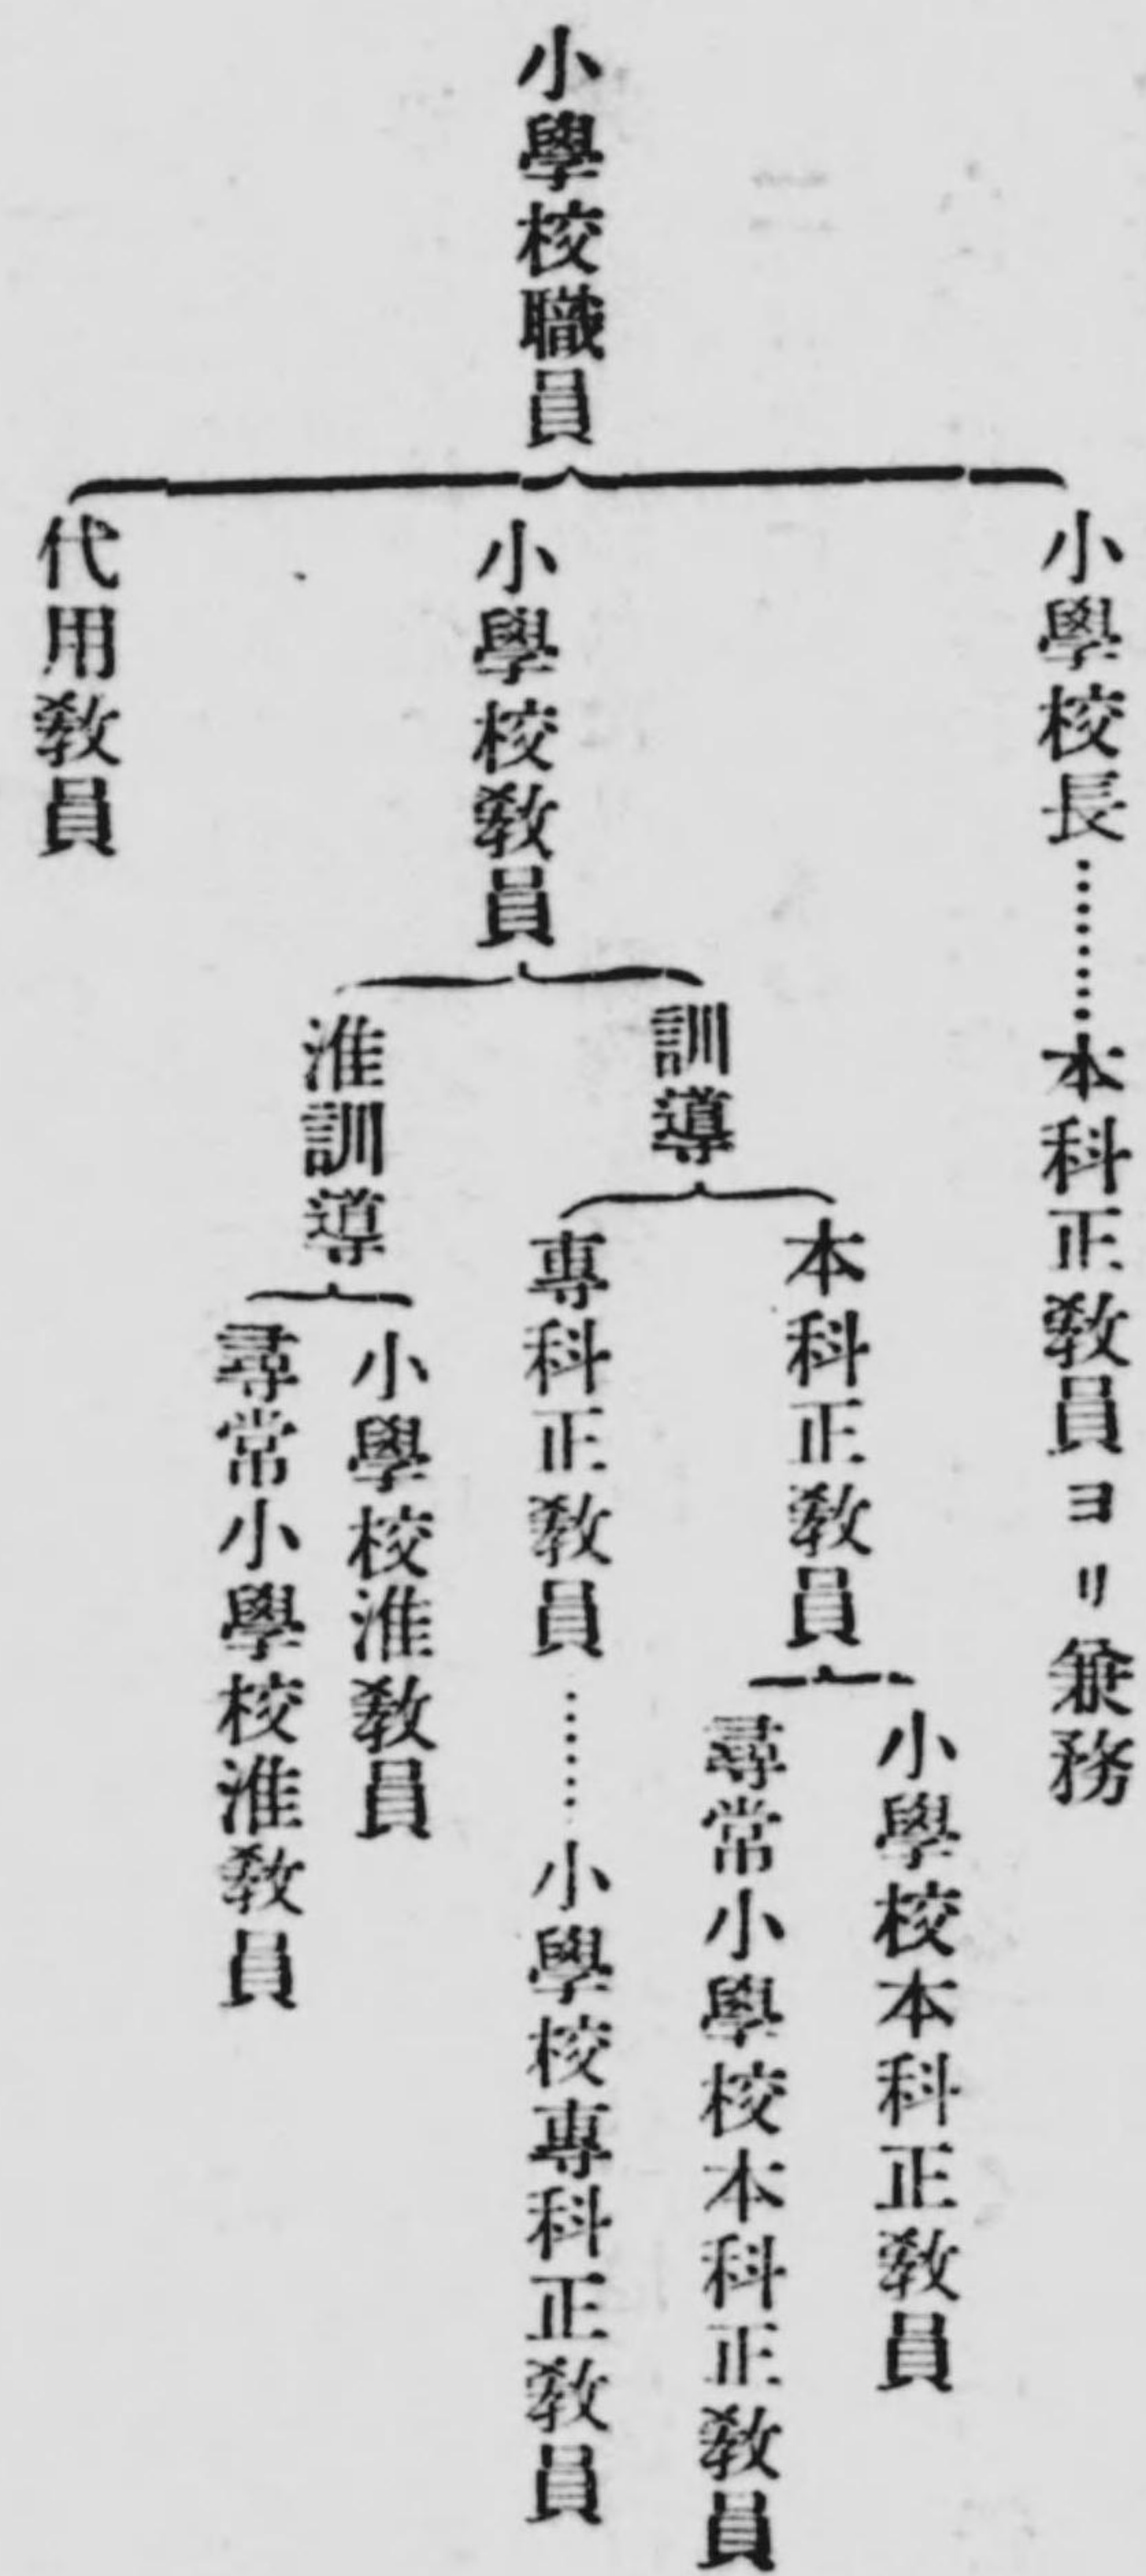 小學校職員
小學校長………本科正教員ヨリ兼務
小學校教員
訓導
本科正教員
小學校本科正教員
尋常小學校本科正教員
專科正教員……小學校專科正教員
准訓導
小學校准教員
尋常小學校准教員
代用教員